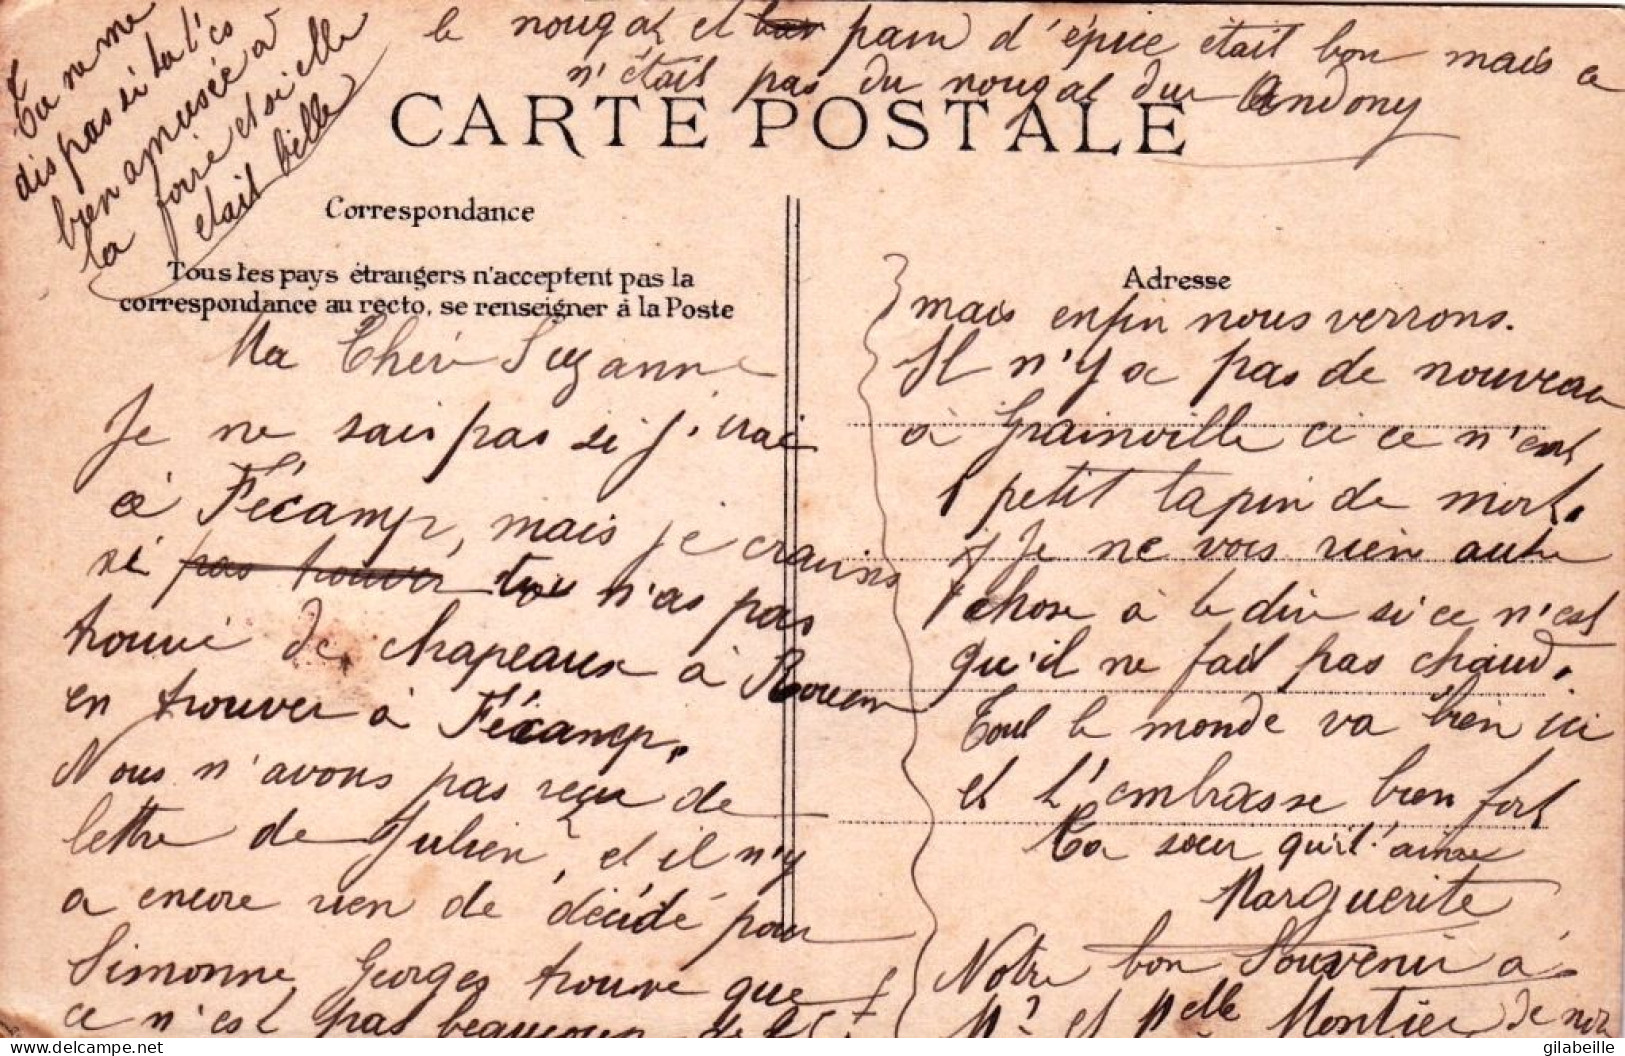 le nougat et pain d'épice était bon mais ce
n'était pas du nougat dur Andony
Tu ne me
dis pas si tu t'es
bien amusée à
la foire et si elle
était belle
CARTE POSTALE
Correspondance
Tous les pays étrangers n'acceptent pas la
correspondance au recto, se renseigner à la Poste
Ma Chere Suzanne
Je ne sais pas si j'irai
à Fécamp, mais je crains
si pas trouver tu n'as pas
trouvé de chapeaux à Rouen
en trouver à Fécamp.
Nous n'avons pas reçu de
lettre de Julien, et il n'y
a encore rien de décidé pour
Simonne, Georges trouve que
ce n'est pas beaucoup
Adresse
mais enfin nous verrons.
Il n'y a pas de nouveau
à Grainville ci ce n'est
1 petit lapin de mort.
Je ne vois rien autre
chose à te dire si ce n'est
qu'il ne fait pas chaud.
Tout le monde va bien ici
et t'embrasse bien fort
Ta sœur qui t'aime
Marguerite
Notre bon Souvenir à
Mr et Melle Montier de nor
gilabeille